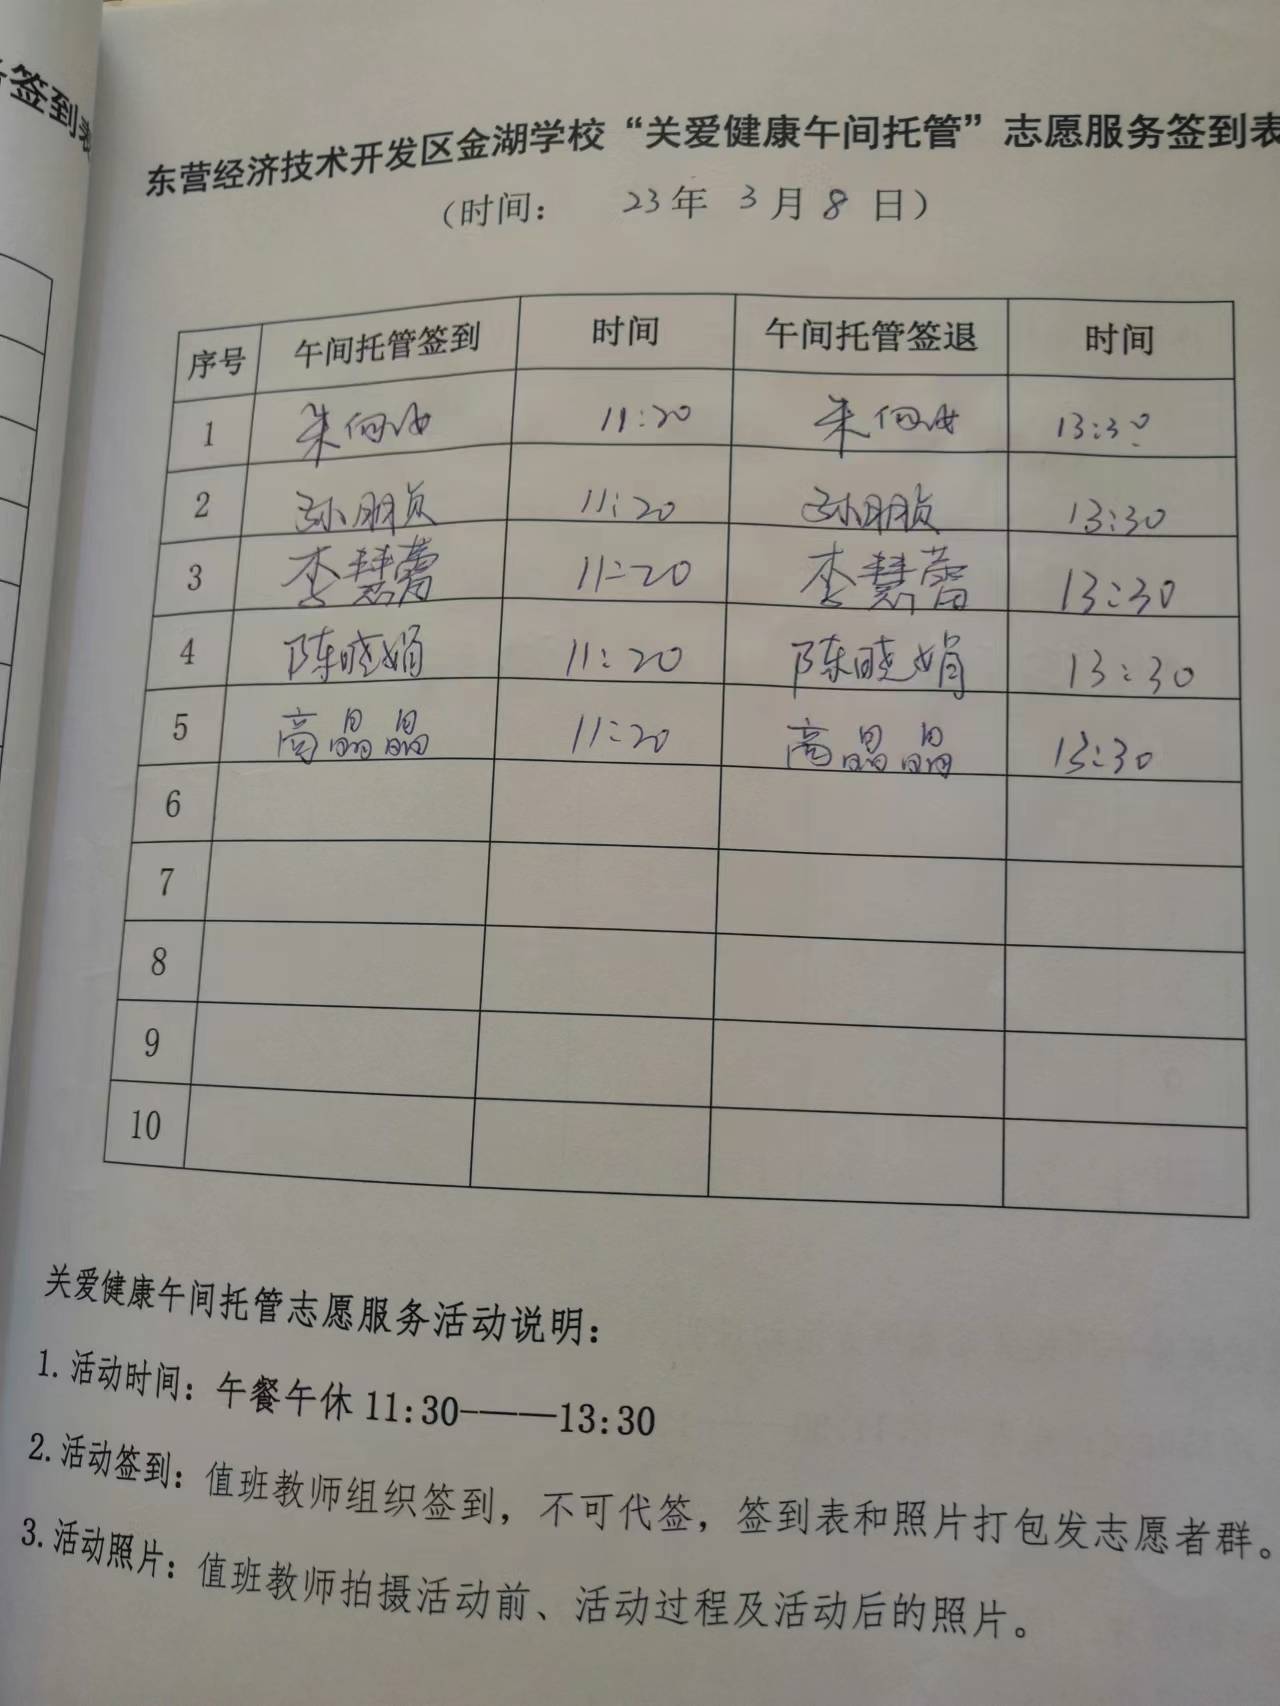 签到表
东营经济技术开发区金湖学校“关爱健康午间托管”志愿服务签到表
（时间： 23年 3月 8日）
序号 午间托管签到 时间 午间托管签退 时间
1 朱 11:20 朱 13:30
2 孙朋贞 11:20 孙朋贞 13:30
3 李慧蕾 11:20 李慧蕾 13:30
4 陈晓娟 11:20 陈晓娟 13:30
5 高晶晶 11:20 高晶晶 13:30
6
7
8
9
10
关爱健康午间托管志愿服务活动说明：
1. 活动时间：午餐午休 11:30———13:30
2. 活动签到：值班教师组织签到，不可代签，签到表和照片打包发志愿者群。
3. 活动照片：值班教师拍摄活动前、活动过程及活动后的照片。